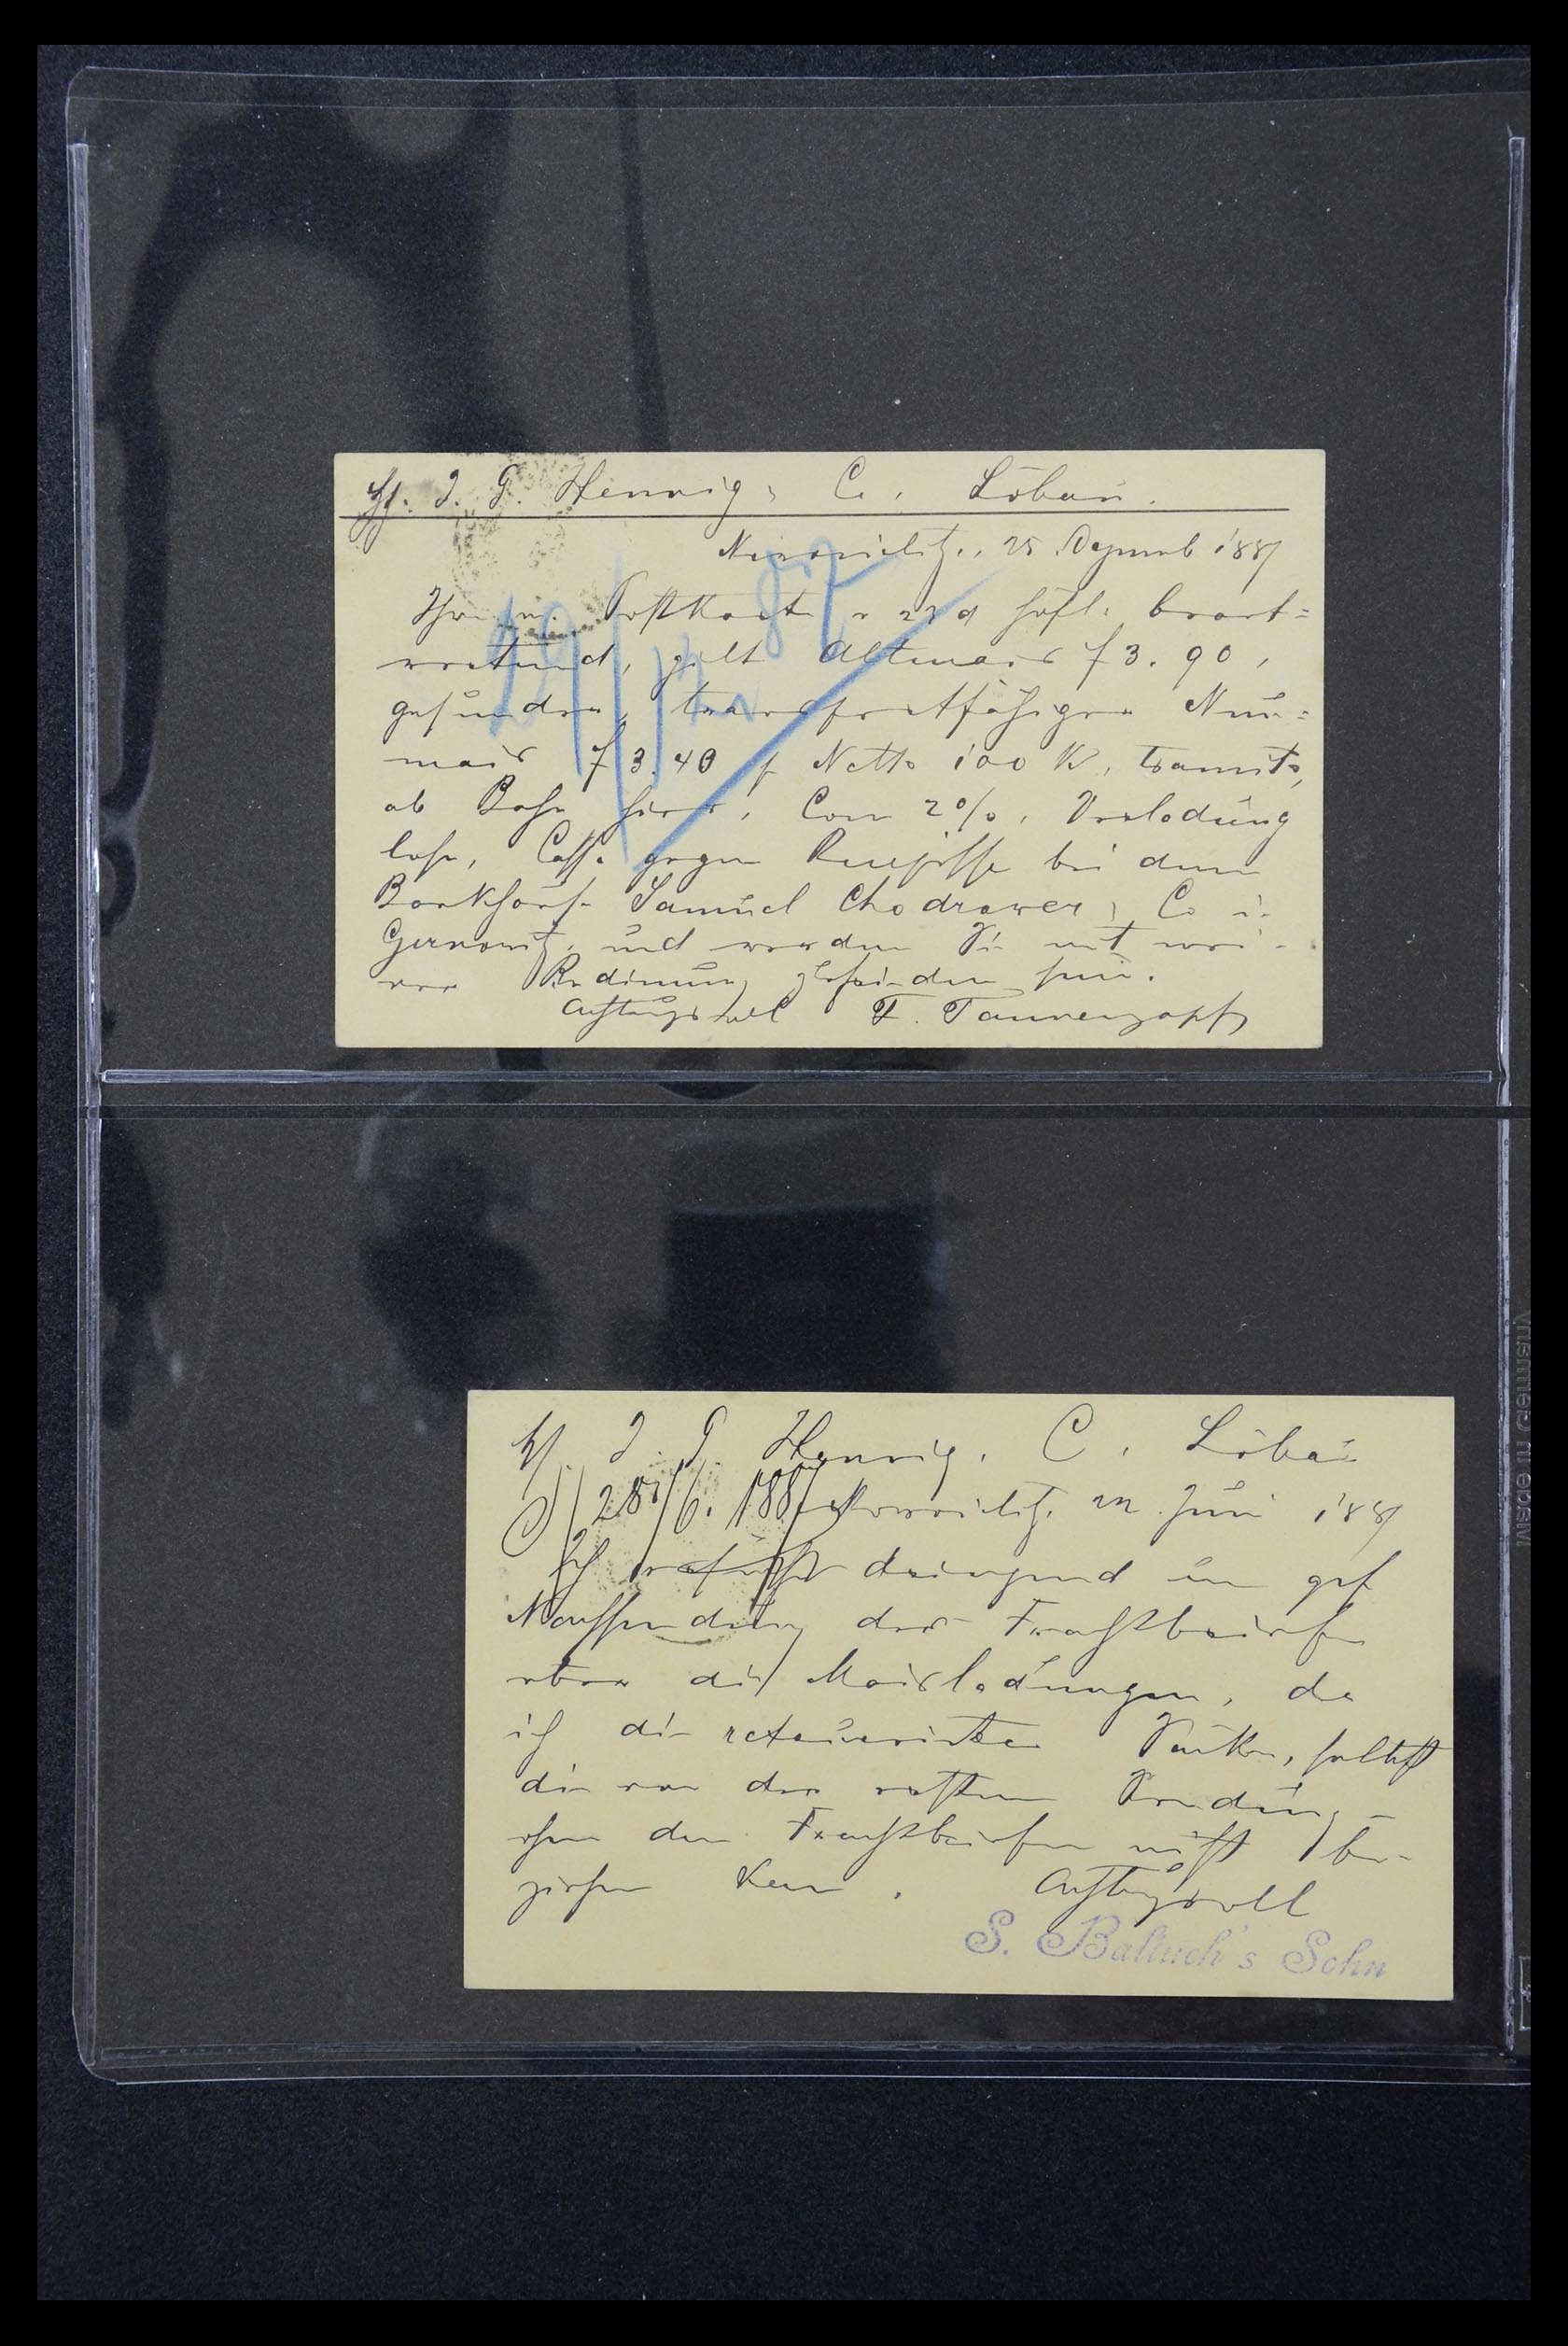 J. G. Hennig & Co. Löbau.
Nowosielitz, 25 Dezemb 1887
Ihre w. Postkarte v 23 d höfl. beant=
wortend, gilt Altmais f 3.90,
gesunden, transportfähigen Neu=
mais f 3.40 p Netto 100 K, transito,
ab Bahn hier, Con 2%, Verladung
lose, Cassa gegen Recepisse bei dem
Bankhause Samuel Chodrower & Co in
Czernowitz, und werden Sie mit mei-
ner Bedienung zufrieden sein.
Achtungsvoll F. Tannenzapf
29/12 87
J. G. Hennig & C. Löbau
28/6. 1887
Nowosielitz, 22 Juni 1887
Ich ersuche dringend um gef
Naussendung der Frachtbriefe
über die Maisladungen, da
ich die retournirten Säcke, selbst
die von der ersten Sendung
ohne den Frachtbriefen nicht be-
ziehen kann. Achtungsvoll
S. Baltuch's Sohn